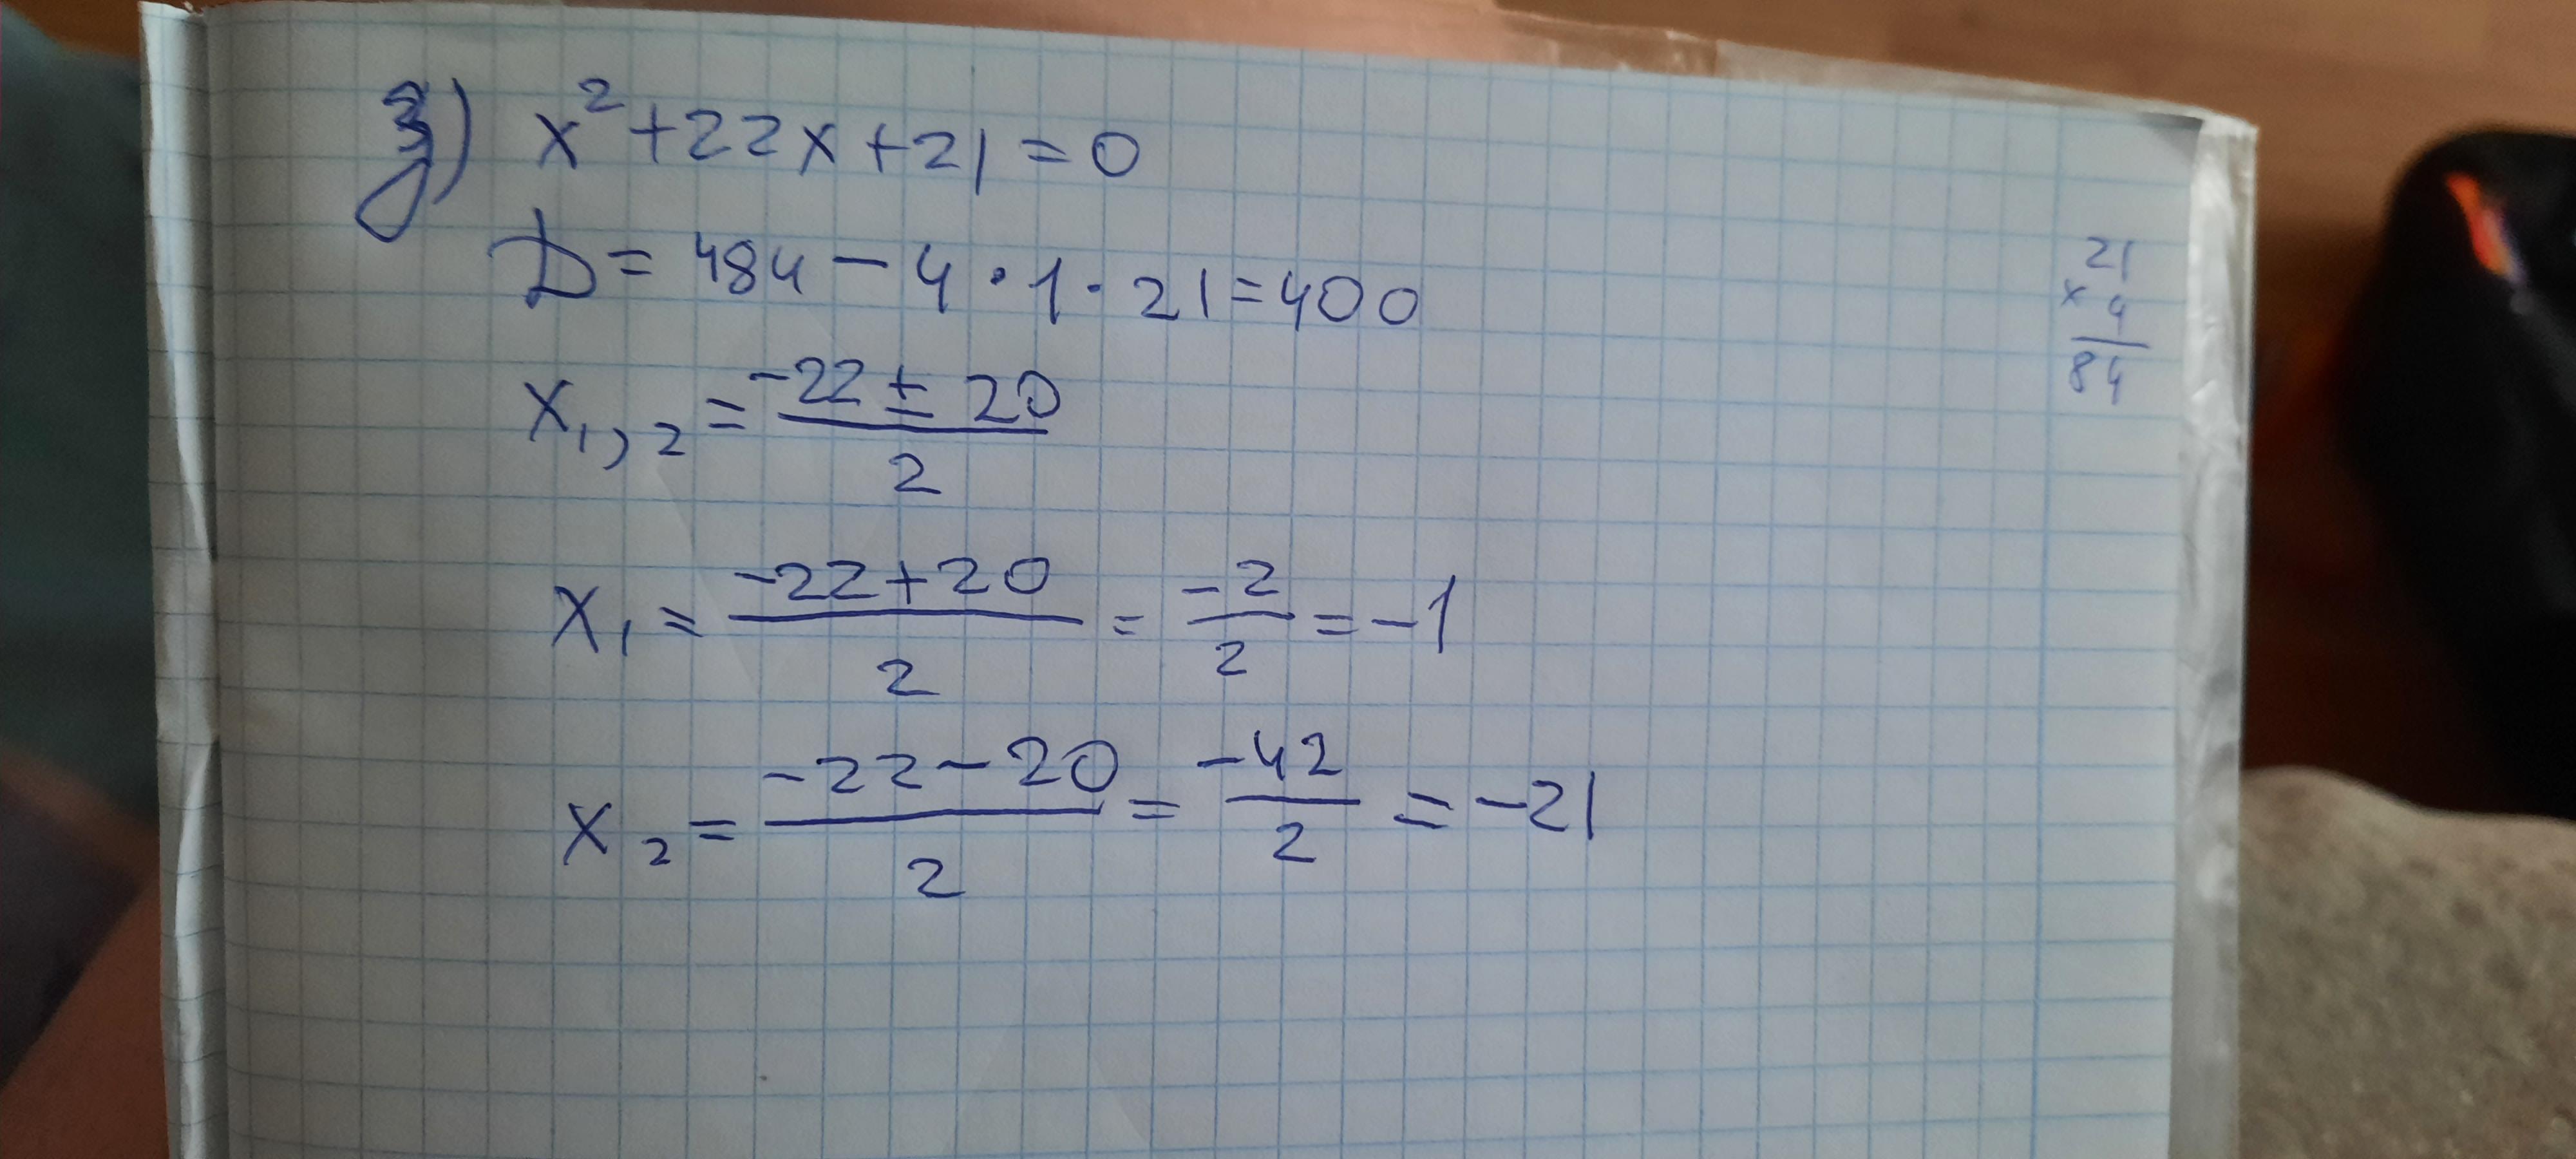 з) x²+22x+21=0
D=484-4·1·21=400
x₁,₂=(-22±20)/2
x₁=(-22+20)/2=-2/2=-1
x₂=(-22-20)/2=-42/2=-21
21
×4
84